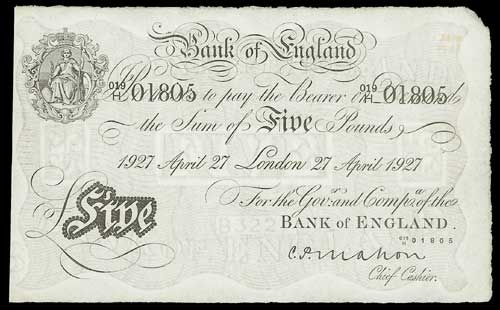 Bank of England
019/H 01805 to pay the Bearer 019/H 01805
the Sum of Five Pounds
1927 April 27 London 27 April 1927
For the Govr. and Compa. of the
BANK of ENGLAND.
£ Five
019/H 01805
C.P. Mahon
Chief Cashier.